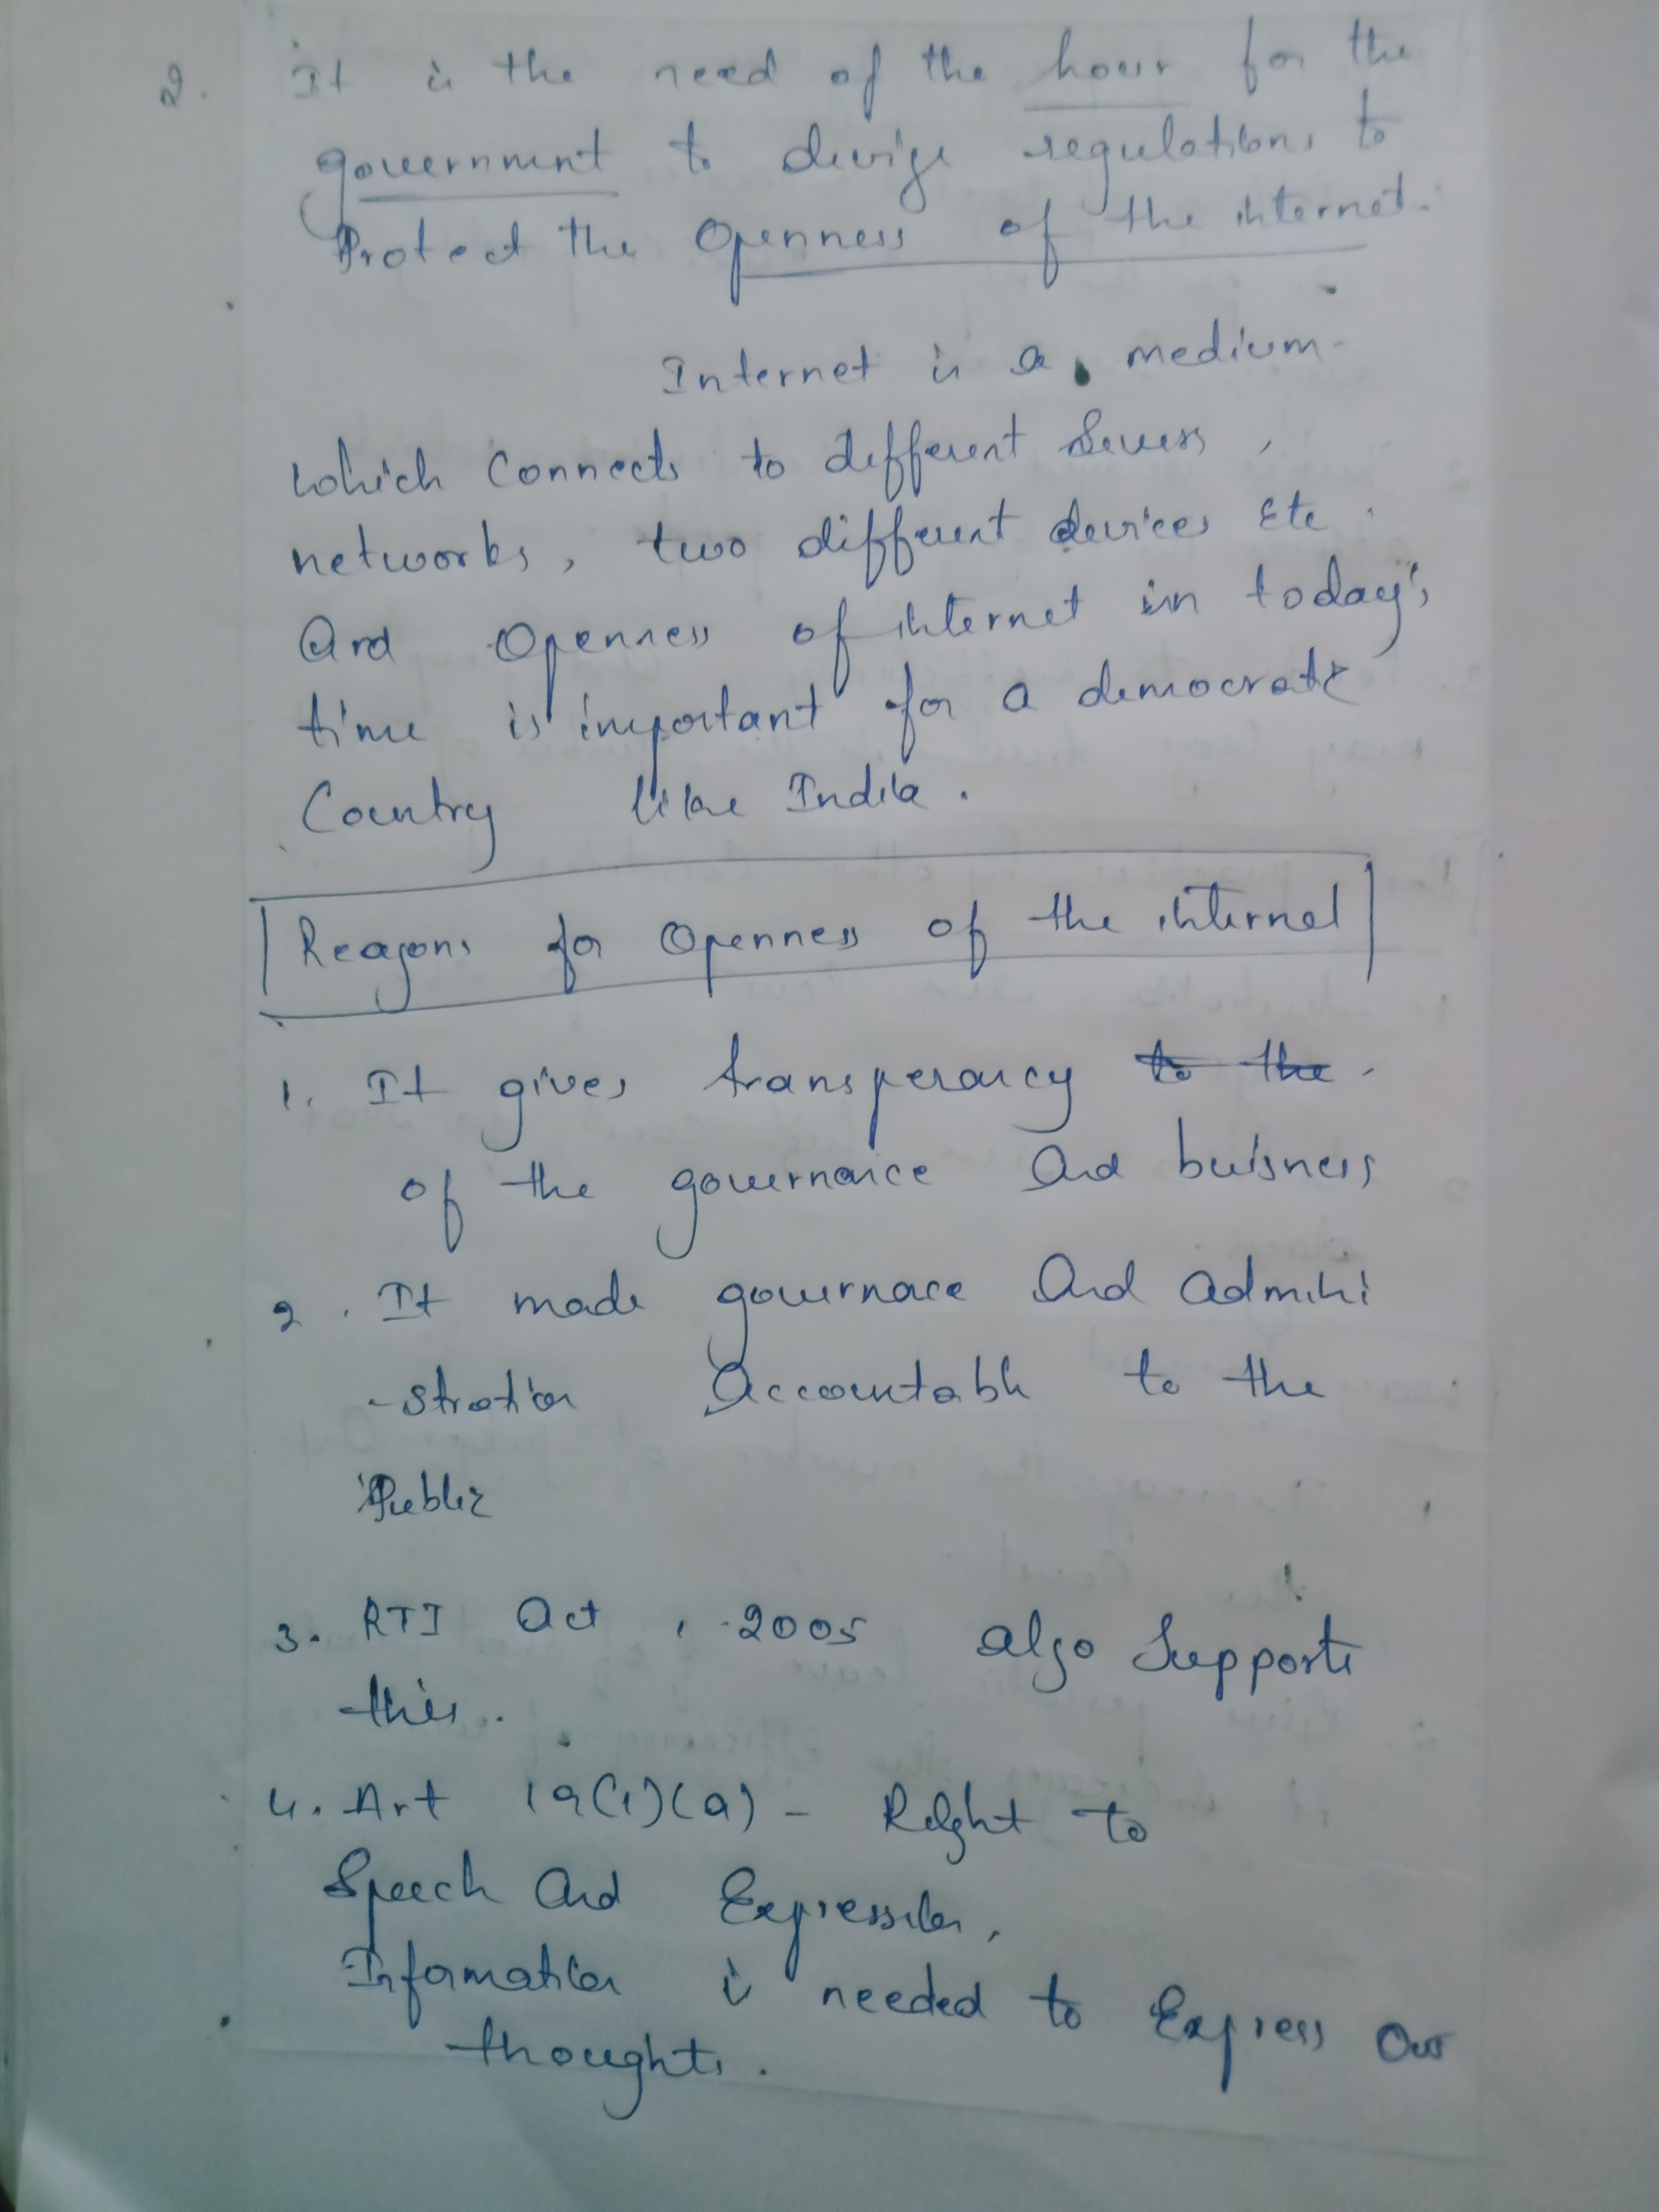 2. It is the need of the hour for the
government to devise regulations to
Protect the Openness of the internet.
Internet is a medium
which Connects to different Severs,
networks, two different devices Etc.
And Openness of internet in today's
time is important for a democratic
Country like India.
Reasons for Openness of the internet
1. It gives transperancy to the
of the governance And buisness
2. It made governace And admini
-stration Accountable to the
Public
3. RTI Act, 2005 also Supports
this.
4. Art 19(1)(a) - Right to
Speech And Expression,
Information is needed to Express Our
thoughts.